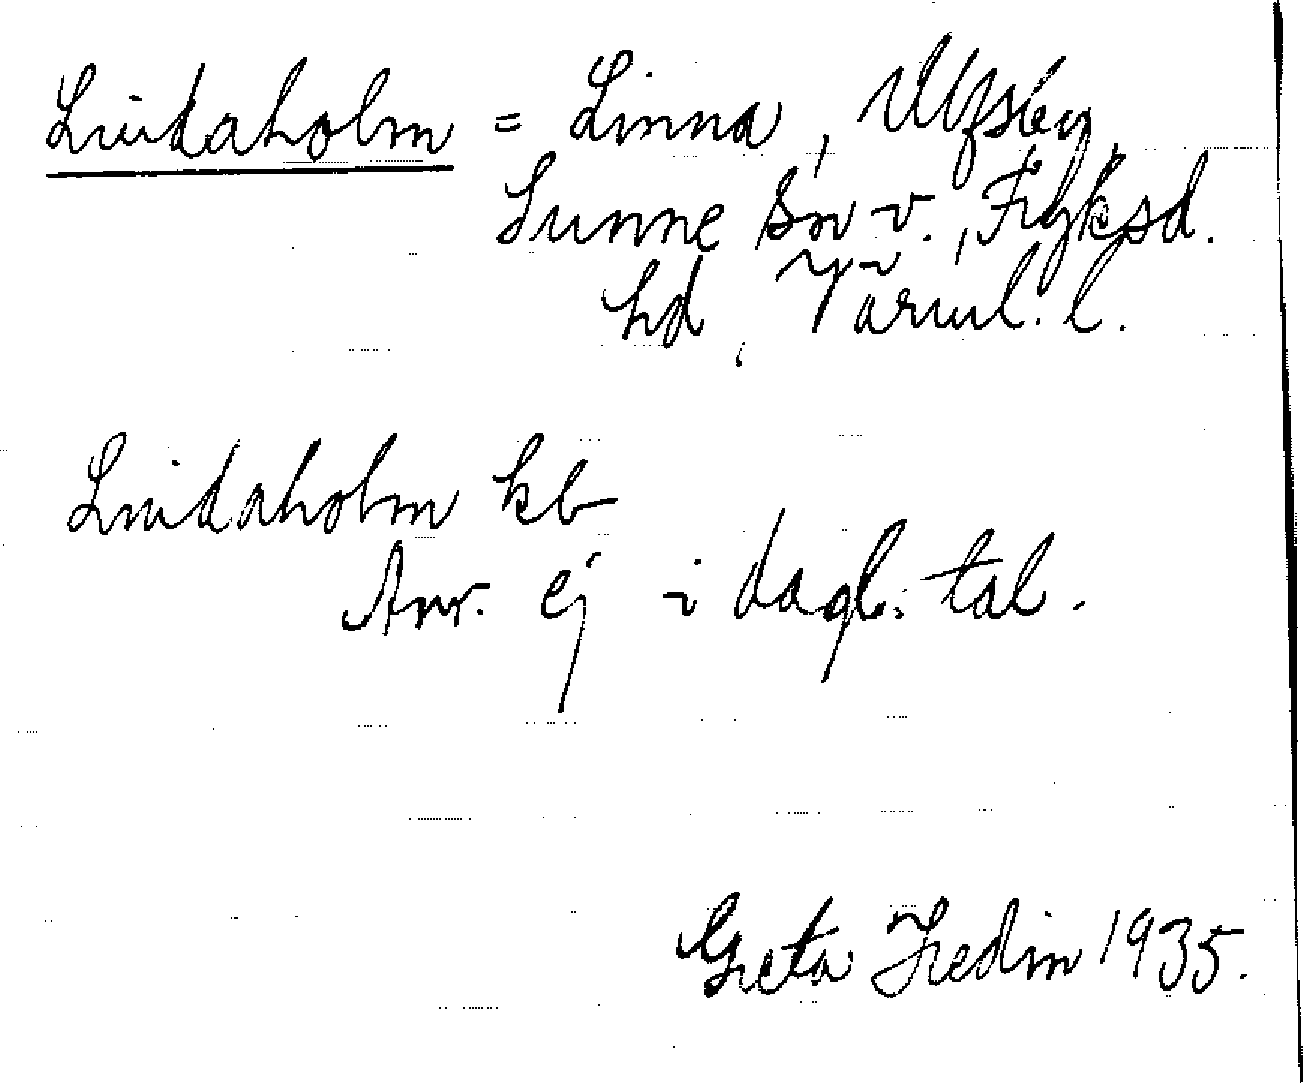 Lindaholm = Linna, Ulfsby,
Sunne sn v., Fryksd.
hd, Värml. l.
Lindaholm kb
Anv. ej i dagl. tal.
Greta Hedin 1935.